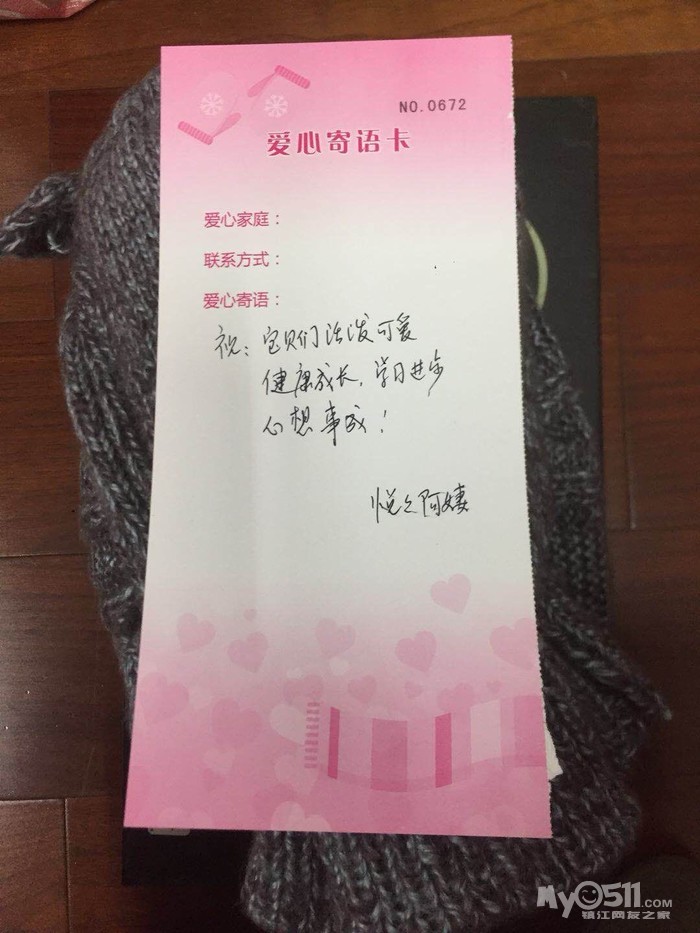 NO.0672
爱心寄语卡
爱心家庭：
联系方式：
爱心寄语：
祝：宝贝们活泼可爱
健康成长，学习进步
心想事成！
悦之阿姨
My0511.COM
镇江网友之家